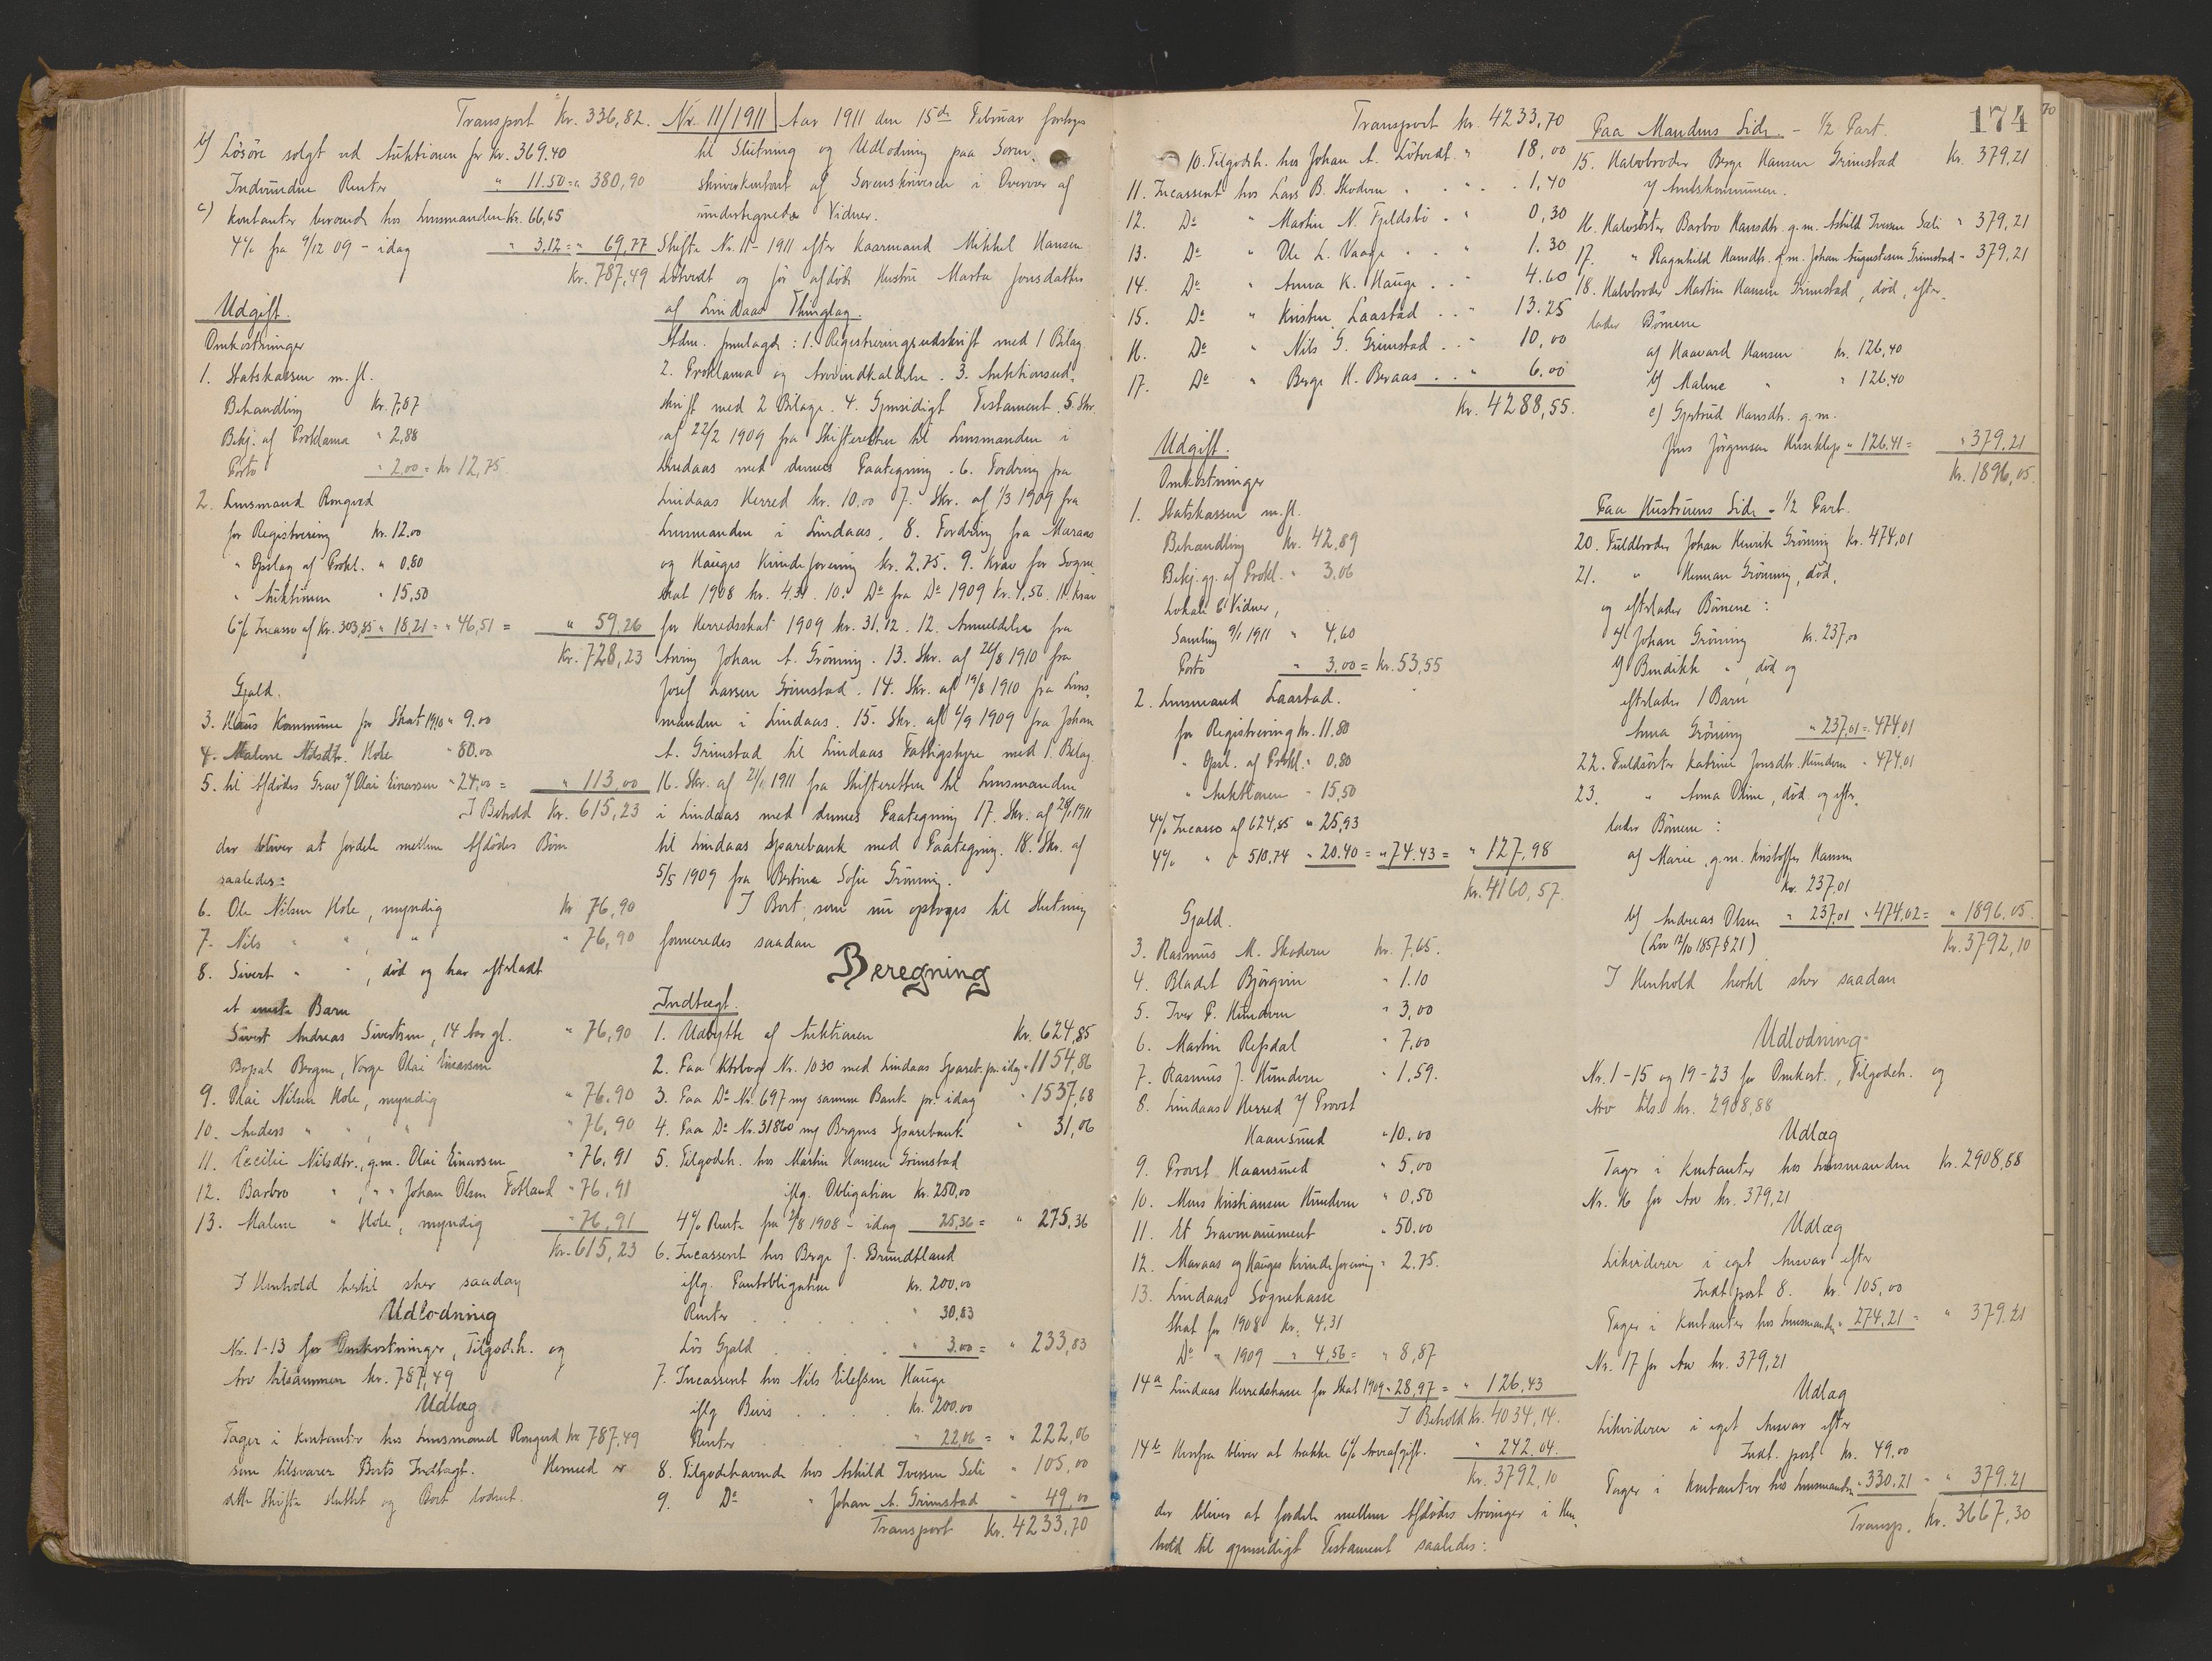 Transport Kr. 336,82.
b) Lösöre solgt ved Auktionen for Kr. 369.40
Indvundne Renter " 11.50 = " 380,90
c) kontanter beroende hos Lensmanden Kr. 66,65
4% fra 9/12 09 - idag " 3,12 = " 69,77
Kr. 787,49
Udgift.
Omkostninger
1. Statskassen m.fl.
Behandling Kr. 7,87
Bekj. af Proklama " 2,88
Porto " 2,00 = Kr 12,75
2. Lensmand Rongved
for Registrering Kr. 12.00
" Opslag af Prokl. " 0,80
" Auktionen " 15,50
6% Incasso af Kr. 303,85 " 18,21 = " 46,51 = " 59,26
Kr. 728,23
Gjæld.
3. Haus Kommune for Skat 1910 " 9.00
4. Malene Nilsdtr. Hole " 80.00
5. til Afdödes Grav v/ Olai Einarsen " 24,00 = " 113,00
I Behold Kr. 615,23
der bliver at fordele mellem Afdödes Börn
saaledes:
6. Ole Nilsen Hole, myndig Kr 76,90
7. Nils " " , " " 76,90
8. Sivert " " , död og har efterladt
et eneste Barn
Sivert Andreas Sivertsen, 14 Aar gl. " 76,90
Bopæl Bergen, Verge Olai Einarsen
9. Olai Nilsen Hole, myndig " 76.90
10. Anders " " , " " 76,90
11. Cecilie Nilsdtr., g.m. Olai Einarsen " 76,91
12. Barbro " , " " Johan Olsen Totland " 76,91
13. Malene " Hole, myndig " 76,91
Kr. 615,23
I Henhold hertil sker saadan
Udlodning
Nr. 1-13 for Omkostninger, Tilgodeh. og
Arv tilsammen kr. 787,49
Udlæg
Tages i kontanter hos Lensmand Rongved Kr 787,49
som tilsvarer Boets Indtægt. Hermed er
dette Skifte sluttet og Boet loddet.
Nr. 11/1911 Aar 1911 den 15de Februar foretoges
til Slutning og Udlodning paa Soren-
skriverkontoret af Sorenskriveren i Overvær af
undertegnede Vidner.
Skifte Nr. 11-1911 efter Kaarmand Mikkel Hansen
Lötvedt og för afdöde Hustru Marta Jonsdatter
af Lindaas Thinglag.
Adm. fremlagde: 1. Registreringsudskrift med 1 Bilag.
2. Proklama og Arveindkaldelse. 3. Auktionsud-
skrift med 2 Bilage. 4. Gjensidigt Testament. 5. Skr.
af 22/2 1909 fra Skifteretten til Lensmanden i
Lindaas med dennes Paategning. 6. Fordring fra
Lindaas Herred kr. 10.00 7. Skr. af 1/3 1909 fra
Lensmanden i Lindaas, 8. Fordring fra Maraas
og Hauges Kvindeforening kr. 2.75. 9. Krav for Sogne-
skat 1908 kr. 4.31. 10. Do fra Do 1909 kr. 4,56. 11 Krav
for Herredsskat 1909 kr. 31.12. 12. Anmeldelse fra
Arving Johan A. Gröning. 13. Skr. af 26/8 1910 fra
Josef Larsen Grimstad. 14. Skr. af 19/8 1910 fra Lens-
manden i Lindaas. 15. Skr. af 4/9 1909 fra Johan
A. Grimstad til Lindaas Fattigstyre med 1 Bilag.
16. Skr. af 21/1 1911 fra Skifteretten til Lensmanden
i Lindaas med dennes Paategning 17. Skr. af 28/1 1911
til Lindaas Sparebank med Paategning. 18. Skr. af
5/5 1909 fra Bertine Sofie Gröning.
I Boet, som nu optoges til Slutning
formeredes saadan
Beregning
Indtægt.
1. Udbytte af Auktionen Kr. 624,85
2. Paa Ktrbog Nr. 1030 med Lindaas Spareb. pr. idag " 1154,86
3. Paa Do Nr. 697 mg samme Bank pr. idag " 1537,68
4. Paa Do Nr. 31860 mg Bergens Sparebank " 31,06
5. Tilgodeh. hos Martin Hansen Grimstad
iflg. Obligation Kr. 250,00
4% Rente fra 2/8 1908 - idag 25,36 = " 275,36
6. Incasseret hos Berge J. Brundtland
iflg. Panteobligation Kr. 200.00
Renter " 30,83
Lös Gjæld " 3.00 = " 233,83
7. Incasseret hos Nils Eilefsen Hauge
iflg Bevis Kr. 200.00
Renter " 22,06 = " 222,06
8. Tilgodehavende hos Askild Iversen Sæle " 105,00
9. Do " Johan A. Grimstad " 49,00
Transport Kr. 4233,70
Transport Kr. 4233,70
10. Tilgodeh. hos Johan A. Lötvedt. " 18,00
11. Incasseret hos Lars B. Skodven " 1,40
12. Do " Martin N. Fjeldsbö " 0,30
13. Do " Ole L. Vaage " 1.30
14. Do " Anna K. Hauge " 4.60
15. Do " Kristen Laastad " 13.25
16. Do " Nils G. Grimstad " 10,00
17. Do " Berge H. Beraas " 6.00
Kr. 4288,55.
Udgift.
Omkostninger
1. Statskassen m.fl.
Behandling Kr. 42,89
Bekj.gj. af Prokl. " 3.06
Lokale & Vidner,
Samling 9/1 1911 " 4,60
Porto " 3,00 = Kr. 53,55
2. Lensmand Laastad.
for Registrering Kr. 11.80
" Opsl. af Prokl. " 0,80
" Auktionen " 15,50
4% Incasso af 624,85 " 25,93
4% " " 510,74 " 20.40 = " 74.43 = " 127,98
Kr. 4160,57.
Gjæld.
3. Rasmus M. Skodven Kr. 7,65.
4. Bladet Björgvin " 1.10
5. Iver P. Hundven " 3,00
6. Martin Refsdal " 7,00
7. Rasmus J. Hundven " 1,59.
8. Lindaas Herred v/ Provst
Kaarsund " 10.00
9. Provst Kaarsund " 5,00
10. Mons Kristiansen Hundven " 0,50
11. Et Gravmonument " 50.00
12. Maraas og Hauges Kvindeforening " 2.75.
13. Lindaas Sognekasse
Skat for 1908 Kr. 4,31
Do " 1909 " 4,56 = " 8,87
14a Lindaas Herredskasse for Skat 1909 " 28,97 = " 126,43
I Behold Kr. 4034,14.
14b Herfra bliver at trække 6% Arveafgift. " 242.04.
Kr. 3792,10
der bliver at fordele mellem Afdödes Arvinger i Hen-
hold til gjensidigt Testament saaledes:
174
70
Paa Mandens Side. - 1/2 Part.
15. Halvbroder Berge Hansen Grimstad Kr. 379,21
v/ Amtskommunen.
16. Halvsöster Barbro Hansdtr. g.m. Askild Iversen Sæle " 379,21
17. " Ragnhild Hansdtr. g.m. Johan Augustinsen Grimstad " 379,21
18. Halvbroder Martin Hansen Grimstad, död, efter-
lader Börnene
a) Haavard Hansen Kr. 126,40
b) Malene " " 126,40
c) Gjertrud Hansdtr. g.m.
Jens Jörgensen Huseklep " 126.41 = " 379,21
Kr. 1896,05.
Paa Hustruens Side - 1/2 Part.
20. Fuldbroder Johan Henrik Gröning Kr. 474,01
21. " Herman Gröning, död,
og efterlader Börnene:
a) Johan Gröning Kr. 237,00
b) Bendikte " , död og
efterlader 1 Barn
Anna Gröning " 237,01 = 474,01
22. Fuldsöster Katrine Jonsdtr. Hundven " 474,01
23. " Anna Oline, död og efter-
lader Börnene:
a) Marie, g.m. Kristoffer Hansen
Kr. 237,01
b) Andreas Olsen " 237,01 " 474,02 = " 1896,05.
(Lov 12/10 1857 § 21) Kr. 3792,10
I Henhold hertil sker saadan
Udlodning
Nr. 1-15 og 19-23 for Omkost., Tilgodeh. og
Arv tils. kr. 2908,88
Udlæg
Tages i kontanter hos Lensmanden Kr. 2908,68
Nr. 16 for Arv kr. 379,21
Udlæg
Likviderer i eget Ansvar efter
Indt. post 8. Kr. 105,00
Tages i kontanter hos Lensmanden " 274,21 = " 379.21
Nr. 17 for Arv kr. 379,21
Udlæg
Likviderer i eget Ansvar efter
Indt. post Kr. 49,00
Tages i kontanter hos Lensmanden " 330.21 = " 379.21
Transp. Kr. 3667,30